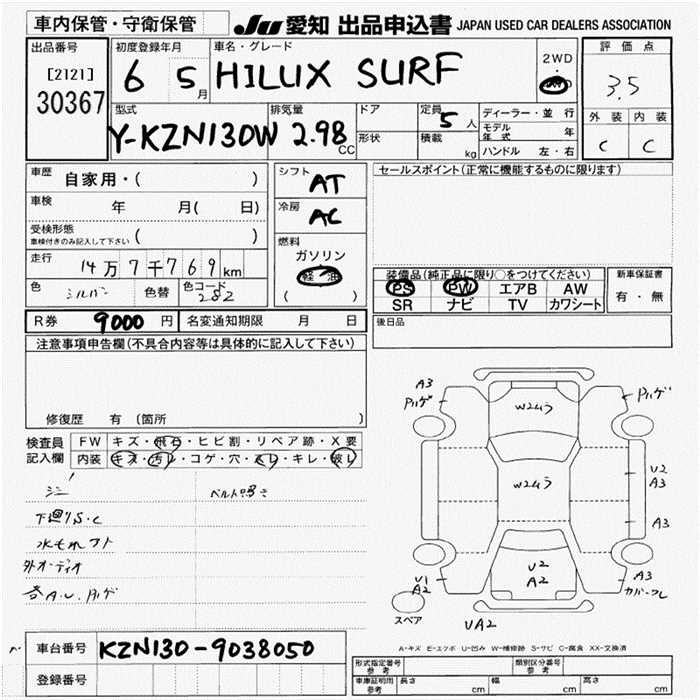 車内保管・守衛保管 JU 愛知 出品申込書 JAPAN USED CAR DEALERS ASSOCIATION
出品番号 初度登録年月 車名・グレード 評価点
[2121] 6 5月 HILUX SURF 2WD 3.5
30367
型式 排気量 ドア 定員 5人 ディーラー・並行 外装 内装
Y-KZN130W 2.98 CC 形状 積載 kg モデル年式 年 C C
ハンドル 左・右
車歴 自家用・( ) シフト AT セールスポイント(正常に機能するものに限ります)
車検 年 月( 日) 冷房 AC
受検形態 ( )
車検付きのみ記入して下さい
燃料 ガソリン
走行 14万7千769km 軽油 装備品(純正品に限り○をつけてください) 新車保証書
( ) PS PW エアB AW 有・無
色 シルバー 色替 色コード 282 SR ナビ TV カワシート
R券 9000円 名変通知期限 月 日 後日品
注意事項申告欄(不具合内容等は具体的に記入して下さい)
A3 ハゲ
W2ムラ
修復歴 有 〔箇所 〕
検査員 FW キズ・飛石・ヒビ割・リペア跡・X要
記入欄 内装 キズ・汚レ・コゲ・穴・スレ・キレ・破レ
W2ムラ U2
A3
ベルト鳴き
下廻りS.C A3
水もれアト
外オーディオ U2 A3
A2
U1
A2 カバーワレ
スペア UA2
A-キズ E-エクボ U-凹み W-補修跡 S-サビ C-腐食 XX-交換済
車台番号 KZN130-9038050
登録番号 形式指定番号 参考 類別区分番号 参考
車庫証明用 参考 長さ cm 幅 cm 高さ cm